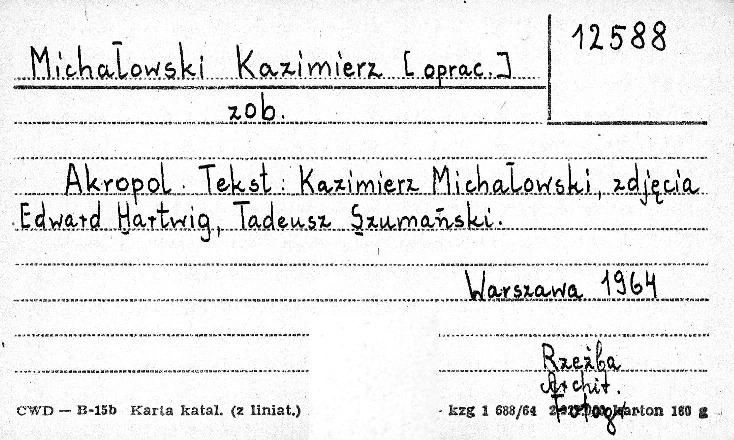 12588
Michałowski Kazimierz [oprac.]
zob.
Akropol. Tekst: Kazimierz Michałowski, zdjęcia
Edward Hartwig, Tadeusz Szumański.
Warszawa 1964
Rzeźba
Archit.
CWD — B-15b Karta katal. (z liniat.)
kzg 1 688/64 karton 180 g